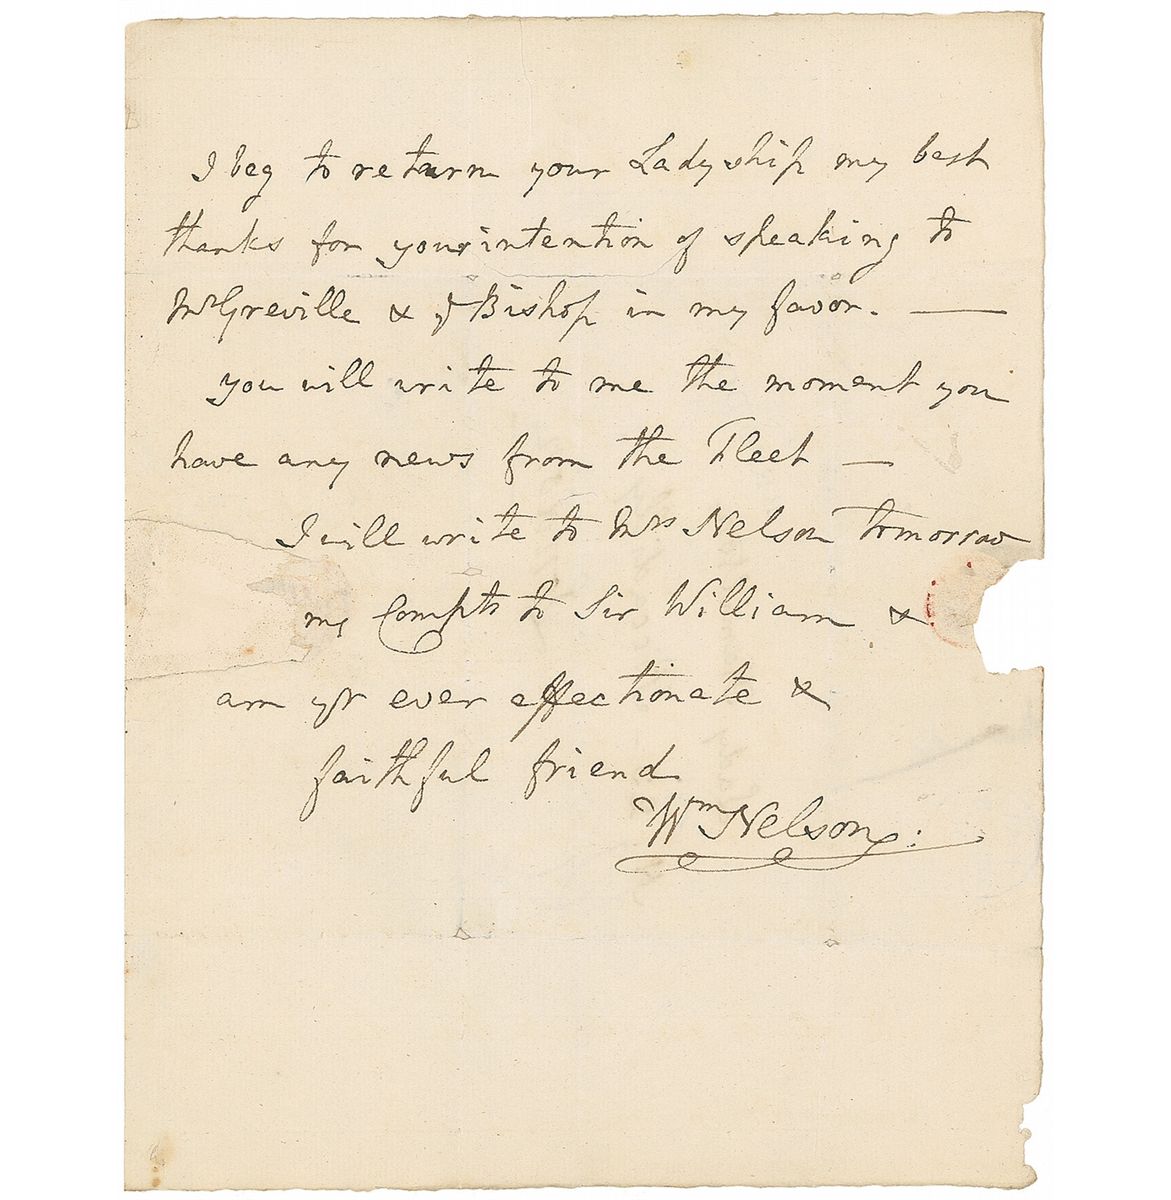 I beg to return your Ladyship my best
thanks for your intention of speaking to
Mr Greville & ye Bishop in my favor. —
you will write to me the moment you
have any news from the Fleet —
I will write to Mrs Nelson tomorrow
my Compts to Sir William &
am yr ever affectionate &
faithful friend
Wm Nelson: